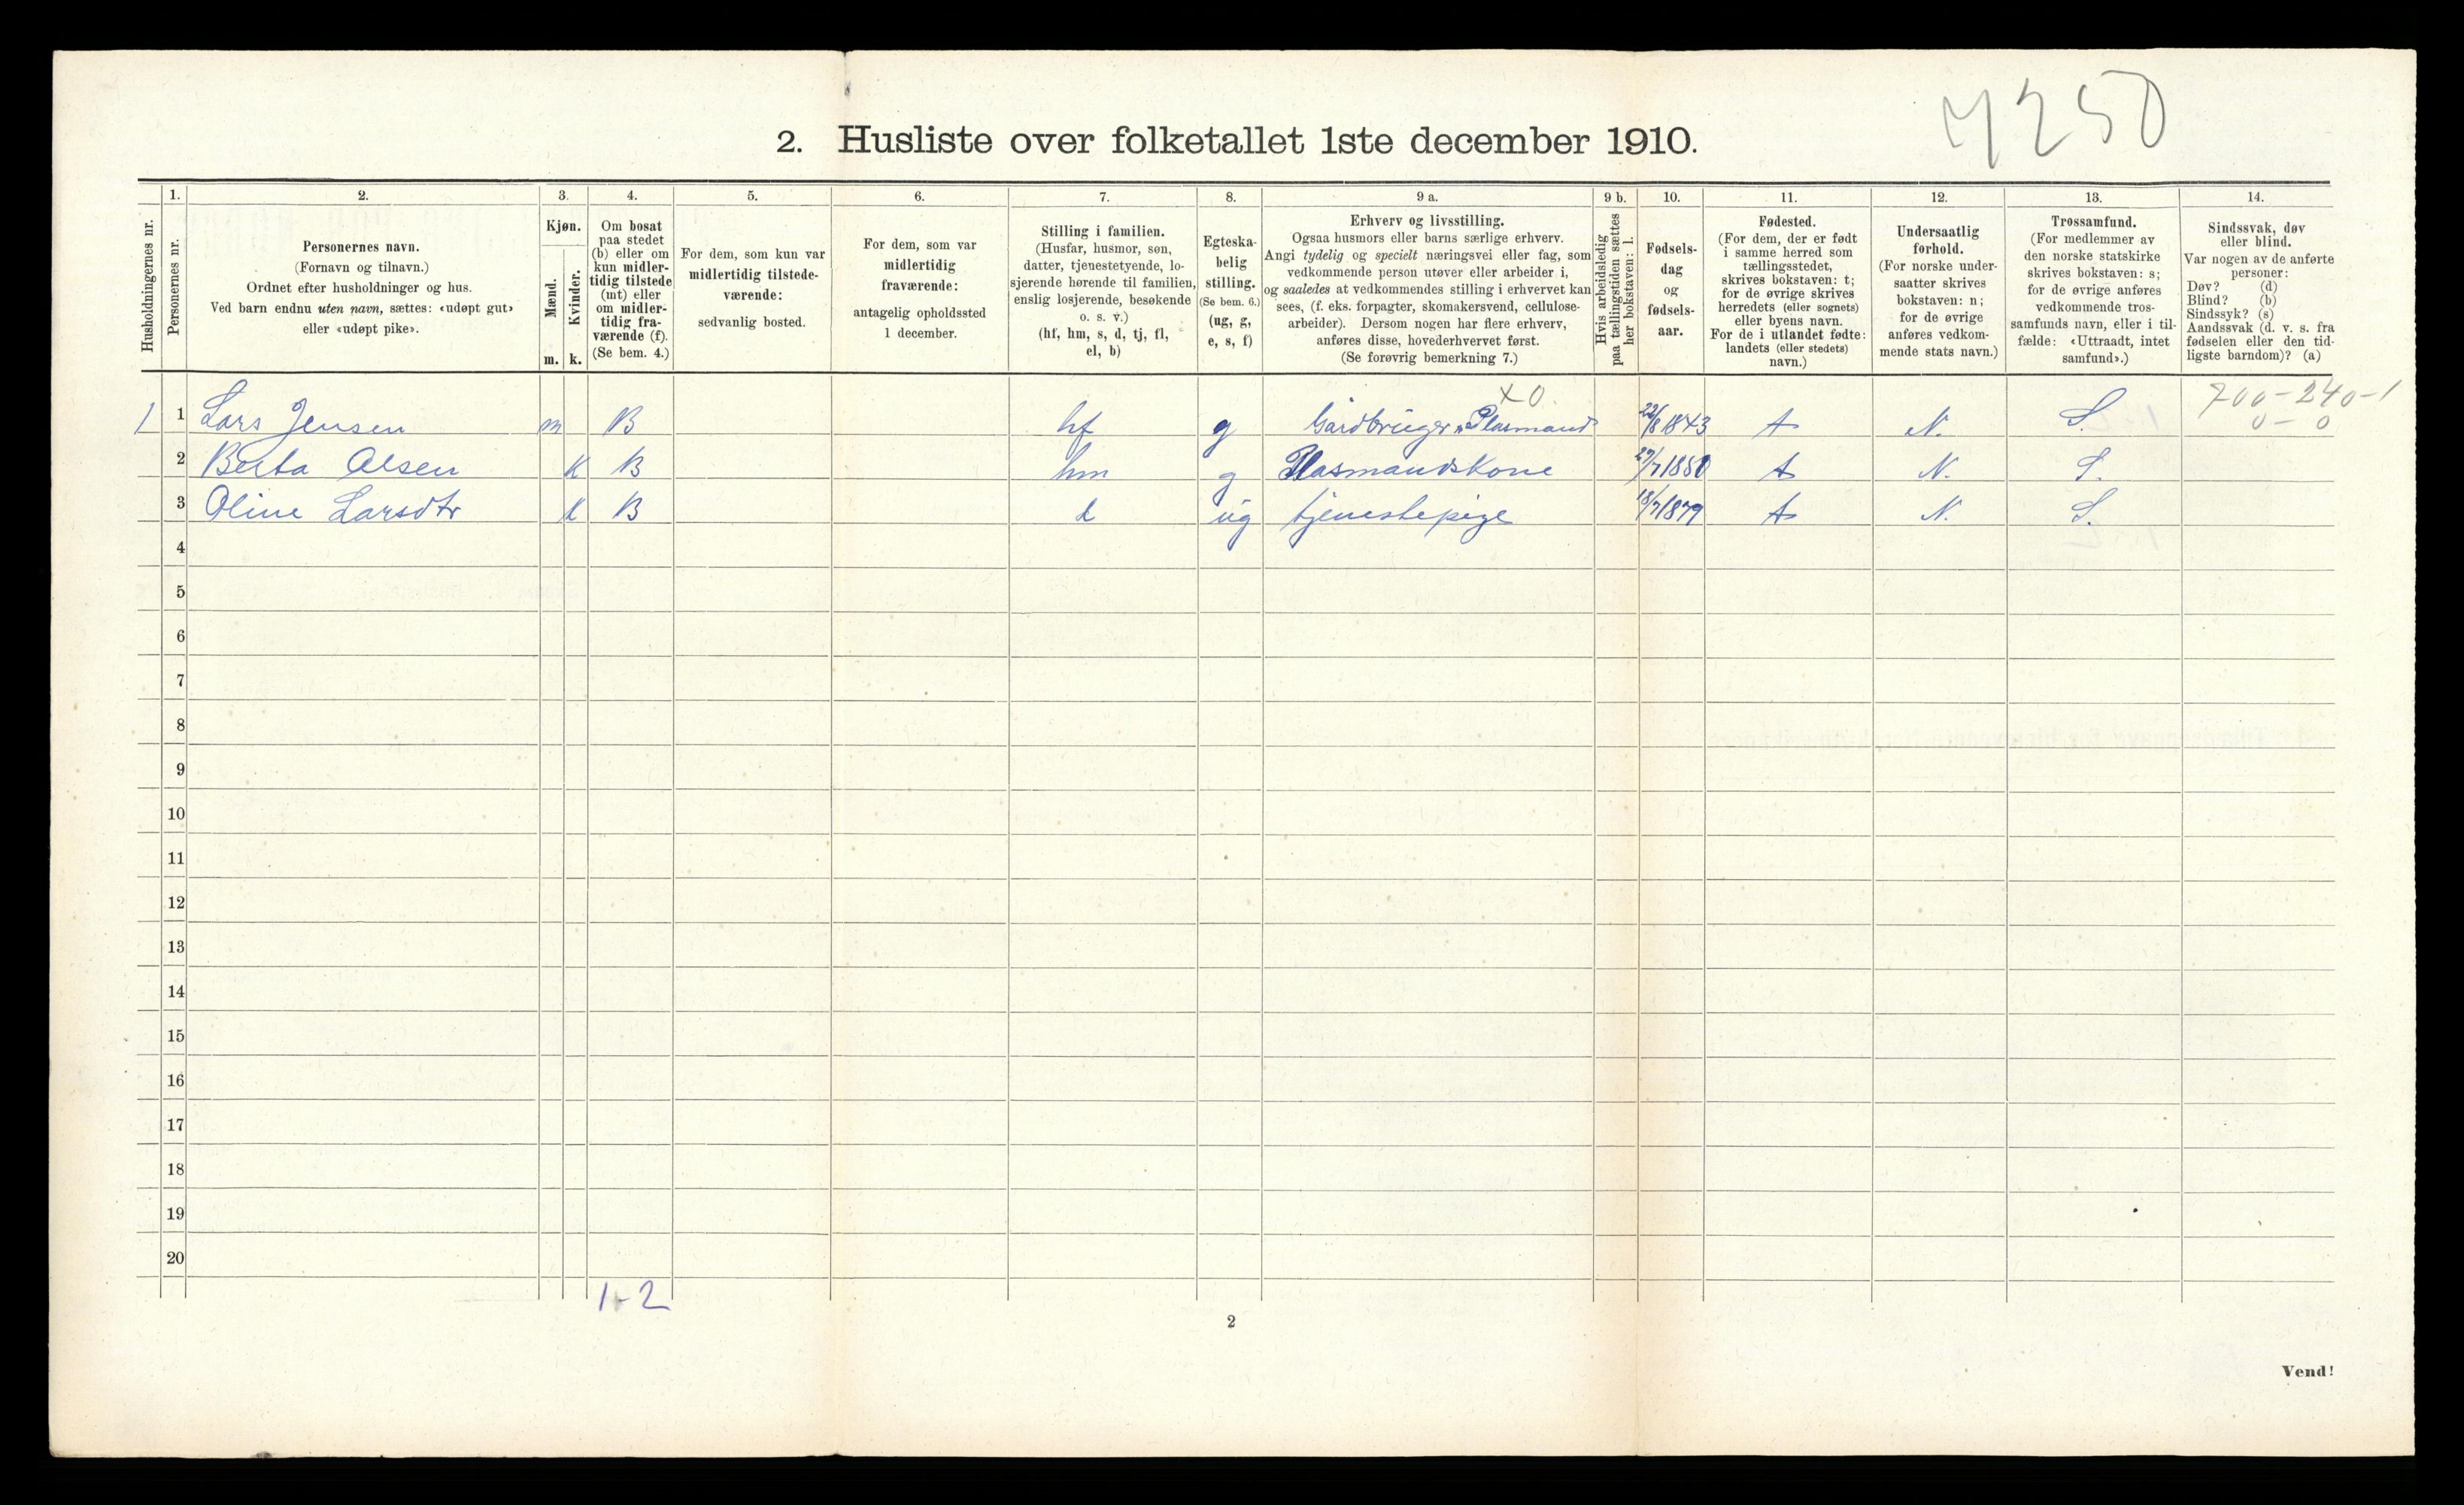 4250
2. Husliste over folketallet 1ste december 1910.
Husholdningernes nr.
1.
Personernes nr.
2.
Personernes navn.
(Fornavn og tilnavn.)
Ordnet efter husholdninger og hus.
Ved barn endnu uten navn, sættes: «udøpt gut»
eller «udøpt pike».
3.
Kjøn.
Mænd.
Kvinder.
m. k.
4.
Om bosat
paa stedet
(b) eller om
kun midler-
tidig tilstede
(mt) eller
om midler-
tidig fra-
værende (f).
(Se bem. 4.)
5.
For dem, som kun var
midlertidig tilstede-
værende:
sedvanlig bosted.
6.
For dem, som var
midlertidig
fraværende:
antagelig opholdssted
1 december.
7.
Stilling i familien.
(Husfar, husmor, søn,
datter, tjenestetyende, lo-
sjerende hørende til familien,
enslig losjerende, besøkende
o. s. v.)
(hf, hm, s, d, tj, fl,
el, b)
8.
Egteska-
belig
stilling.
(Se bem. 6.)
(ug, g,
e, s, f)
9 a.
Erhverv og livsstilling.
Ogsaa husmors eller barns særlige erhverv.
Angi tydelig og specielt næringsvei eller fag, som
vedkommende person utøver eller arbeider i,
og saaledes at vedkommendes stilling i erhvervet kan
sees, (f. eks. forpagter, skomakersvend, cellulose-
arbeider). Dersom nogen har flere erhverv,
anføres disse, hovederhvervet først.
(Se forøvrig bemerkning 7.)
9 b.
Hvis arbeidsledig
paa tællingstiden sættes
her bokstaven: l.
10.
Fødsels-
dag
og
fødsels-
aar.
11.
Fødested.
(For dem, der er født
i samme herred som
tællingsstedet,
skrives bokstaven: t;
for de øvrige skrives
herredets (eller sognets)
eller byens navn.
For de i utlandet fødte:
landets (eller stedets)
navn.)
12.
Undersaatlig
forhold.
(For norske under-
saatter skrives
bokstaven: n;
for de øvrige
anføres vedkom-
mende stats navn.)
13.
Trossamfund.
(For medlemmer av
den norske statskirke
skrives bokstaven: s;
for de øvrige anføres
vedkommende tros-
samfunds navn, eller i til-
fælde: «Uttraadt, intet
samfund».)
14.
Sindssvak, døv
eller blind.
Var nogen av de anførte
personer:
Døv? (d)
Blind? (b)
Sindssyk? (s)
Aandssvak (d. v. s. fra
fødselen eller den tid-
ligste barndom)? (a)
x 0. 700-240-1
1 1 Lars Jensen m B hf g Gårdbruger Plasmand 22/8 1843 t N. S. 0-0
2 Berta Olsen K B hm g Plasmandskone 29/7 1850 t N. S.
3 Oline Larsdtr K B d ug tjenestepige 18/7 1879 t N. S.
4
5
6
7
8
9
10
11
12
13
14
15
16
17
18
19
20
1-2
2
Vend!